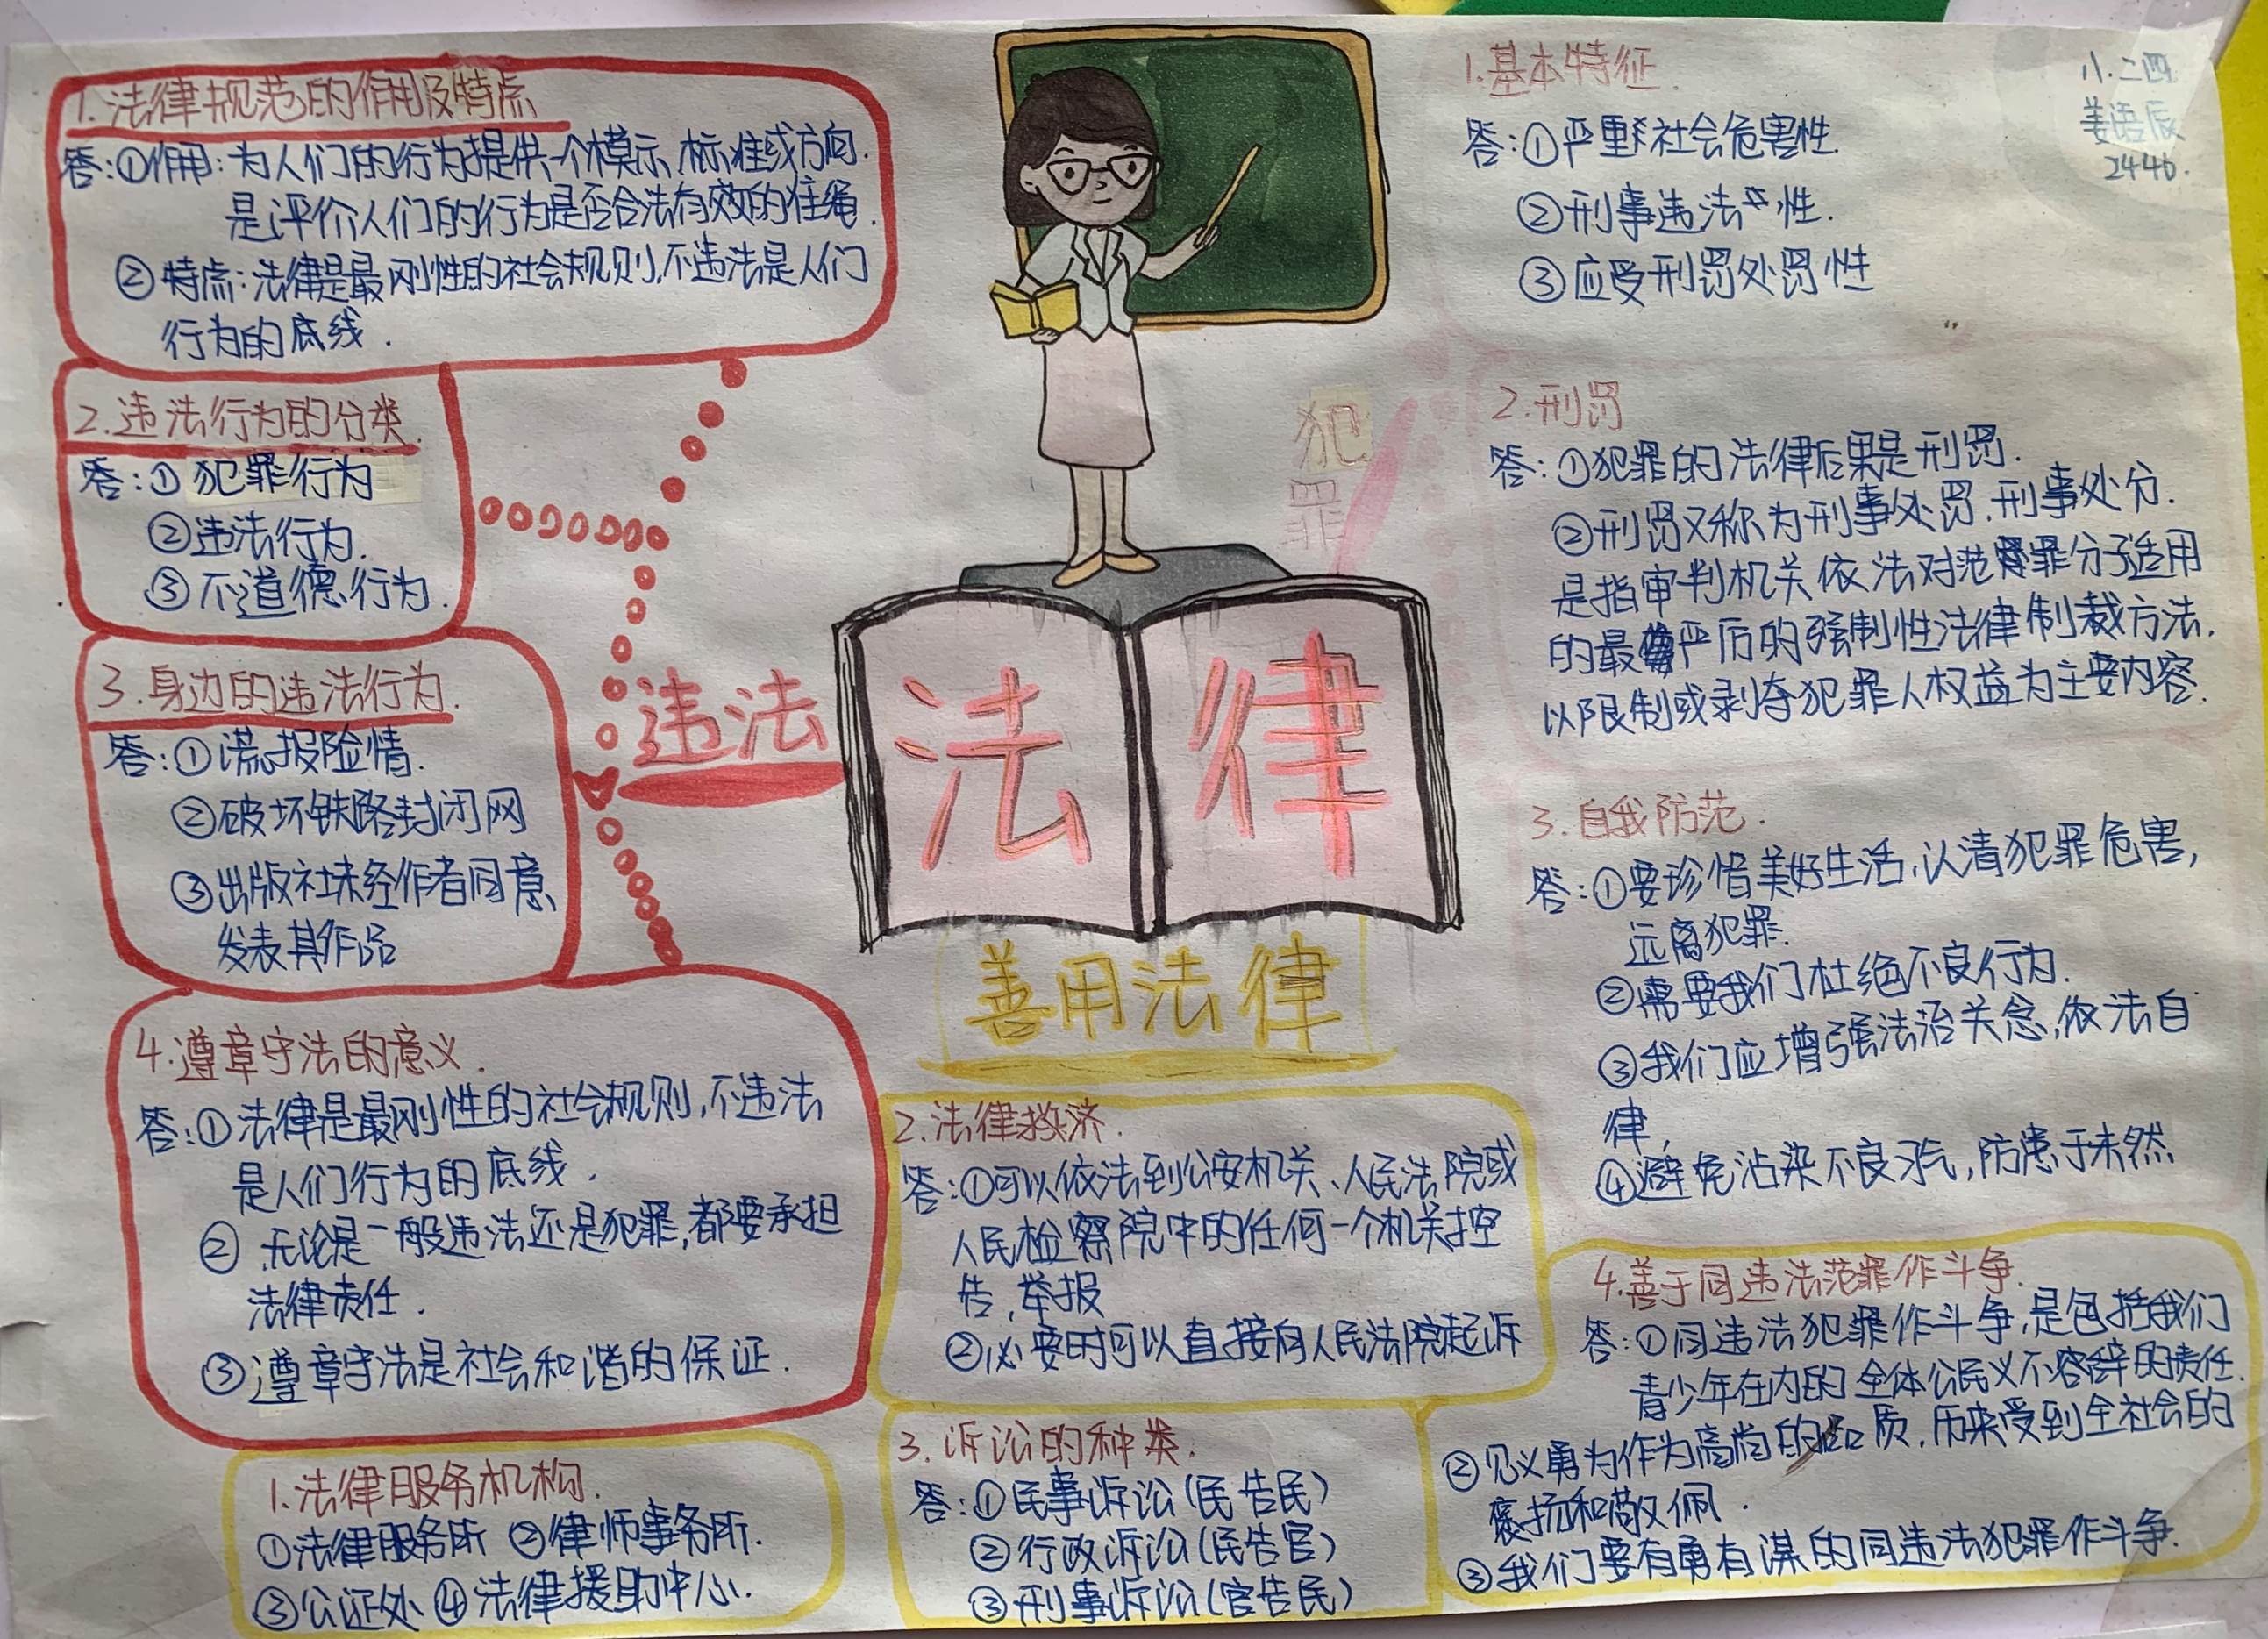 1.法律规范的作用及特点
答:①作用:为人们的行为提供一个模示、标准或方向.
是评价人们的行为是否合法有效的准绳.
②特点:法律是最刚性的社会规则,不违法是人们
行为的底线.
2.违法行为的分类.
答:①犯罪行为
②违法行为.
③不道德行为.
3.身边的违法行为.
答:①谎报险情.
②破坏铁路封闭网
③出版社未经作者同意,
发表其作品
4.遵章守法的意义.
答:①法律是最刚性的社会规则,不违法
是人们行为的底线.
②无论是一般违法还是犯罪,都要承担
法律责任.
③遵章守法是社会和谐的保证.
违法
法律
犯
罪
善用法律
1.法律服务机构.
①法律服务所 ②律师事务所.
③公证处 ④法律援助中心.
2.法律救济.
答:①可以依法到公安机关、人民法院或
人民检察院中的任何一个机关控
告,举报
②必要时可以直接向人民法院起诉
3.诉讼的种类.
答:①民事诉讼(民告民)
②行政诉讼(民告官)
③刑事诉讼(官告民)
八.二四
姜语辰
2446.
1.基本特征
答:①严重社会危害性.
②刑事违法性.
③应受刑罚处罚性
2.刑罚
答:①犯罪的法律后果是刑罚.
②刑罚又称为刑事处罚.刑事处分.
是指审判机关依法对范罪分子适用
的最严厉的强制性法律制裁方法.
以限制或剥夺犯罪人权益为主要内容.
3.自我防范.
答:①要珍惜美好生活,认清犯罪危害,
远离犯罪.
②需要我们杜绝不良行为.
③我们应增强法治关念,依法自
律,
④避免沾染不良习气,防患于未然
4.善于同违法范罪作斗争.
答:①同违法犯罪作斗争,是包括我们
青少年在内的全体公民义不容辞的责任.
②见义勇为作为高尚的品质,历来受到全社会的
褒扬和敬佩.
③我们要有勇有谋的同违法犯罪作斗争.